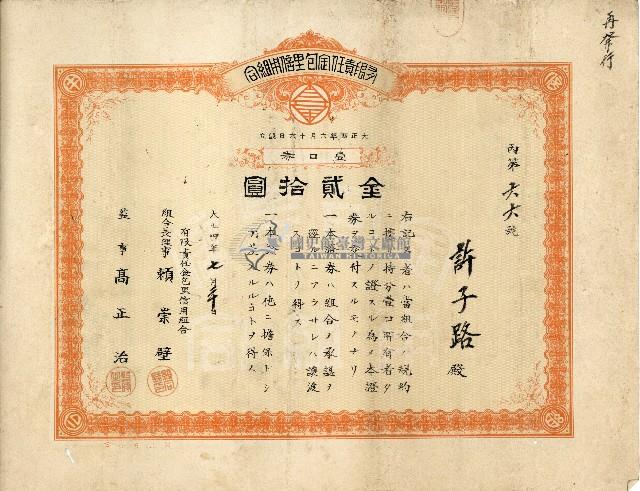 再發行
有限責任金包里信用組合
大正四年六月十六日設立
壹口券
金貳拾圓
丙第六六號
許子路殿
右記名者ハ當組合ノ規約
ニ據リ持分壹口所有者タ
ルコトヲ證スル為メ本證
券ヲ交付スルモノナリ
一本證券ハ組合ノ承認ヲ
經ルニアラサレハ讓渡
スコトヲ得ス
一本證券ハ他ニ擔保トシ
大正四年七月三十日
有限責任金包里信用組合
組合長理事 賴崇壁
監事 高正治
國史館臺灣文獻館
TAIWAN HISTORICA